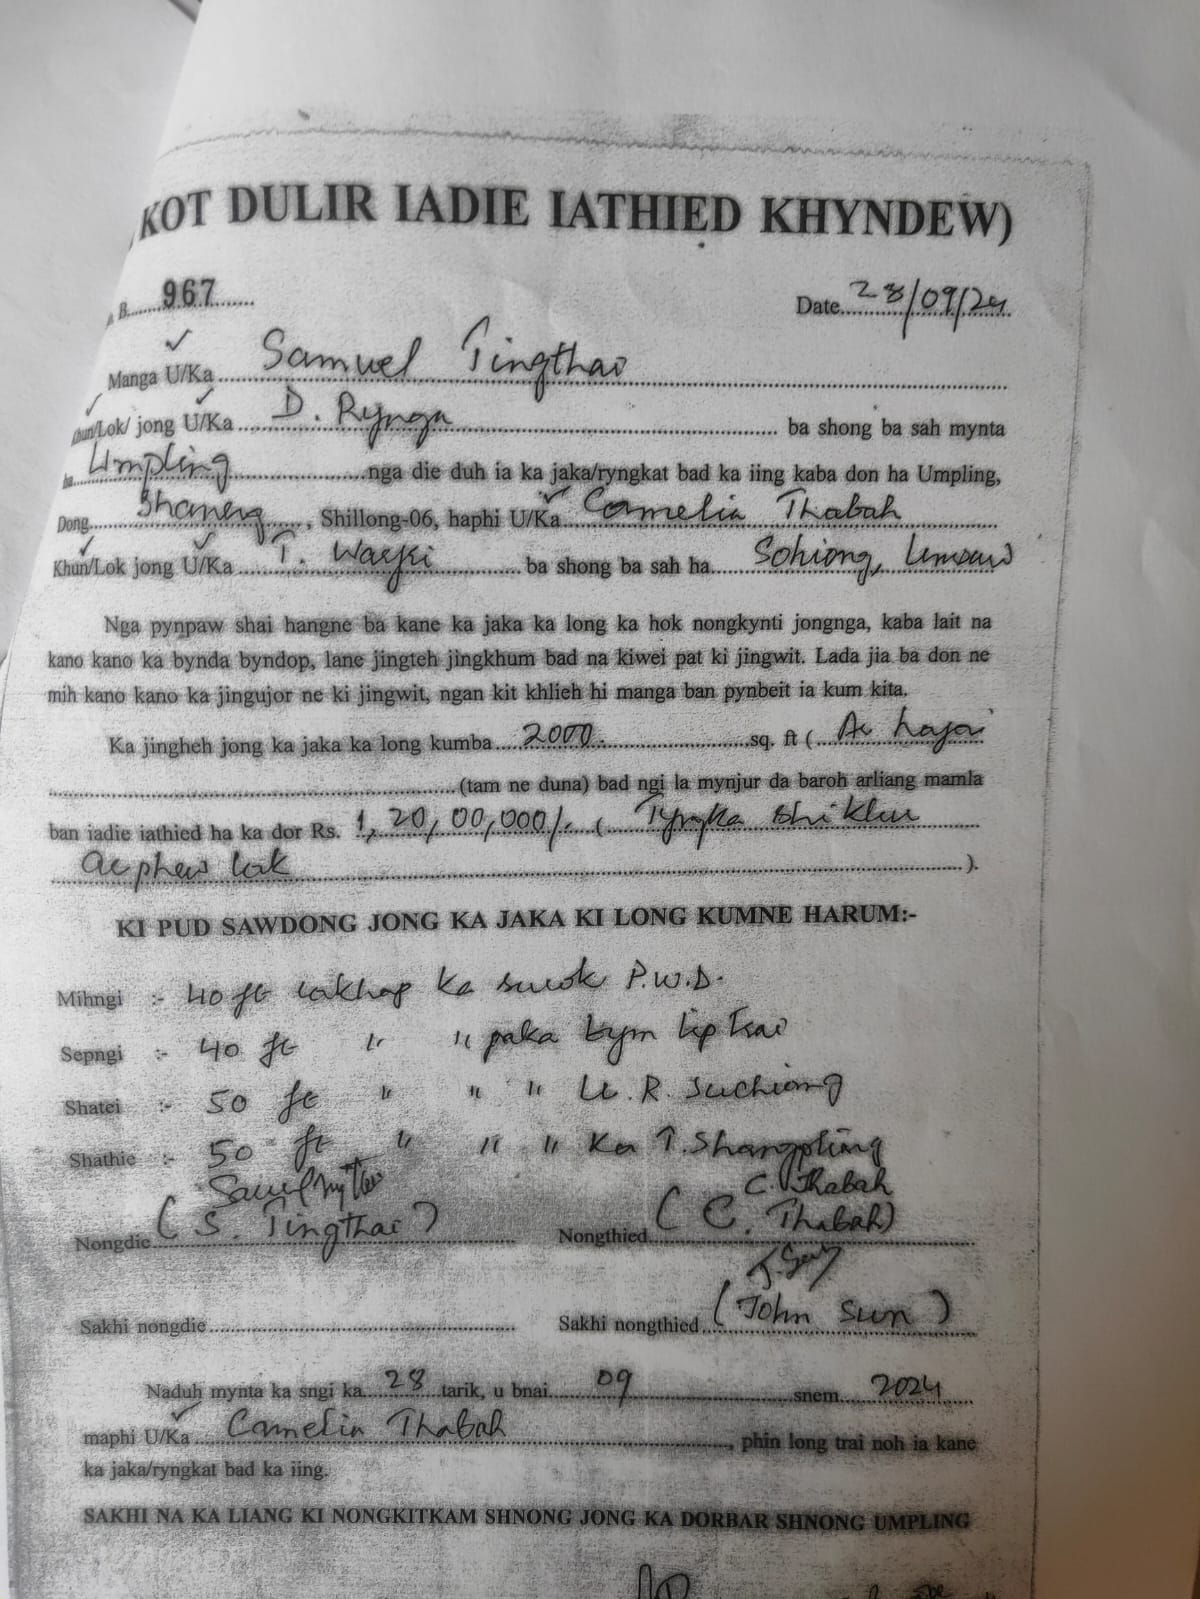 KOT DULIR IADIE IATHIED KHYNDEW)
B......967.......
Date 28/09/24
Manga U/Ka Samuel Tingthai
Khun/Lok/ jong U/Ka D. Rynga ba shong ba sah mynta
ha Umpling nga die duh ia ka jaka/ryngkat bad ka iing kaba don ha Umpling,
Dong , Shillong-06, haphi U/Ka Camelia Thabah
Khun/Lok jong U/Ka T. ba shong ba sah ha Sohiong,
Nga pynpaw shai hangne ba kane ka jaka ka long ka hok nongkynti jongnga, kaba lait na
kano kano ka bynda byndop, lane jingteh jingkhum bad na kiwei pat ki jingwit. Lada jia ba don ne
mih kano kano ka jingujor ne ki jingwit, ngan kit khlieh hi manga ban pynbeit ia kum kita.
Ka jingheh jong ka jaka ka long kumba 2000 sq. ft ( Ar hajar
(tam ne duna) bad ngi la mynjur da baroh arliang mamla
ban iadie iathied ha ka dor Rs. 1,20,00,000/. ( Tyngka shi klur
ar phew lak ).
KI PUD SAWDONG JONG KA JAKA KI LONG KUMNE HARUM:-
Mihngi :- 40 ft lakhap ka surok P.W.D.
Sepngi :- 40 ft " " paka
Shatei :- 50 ft " " " R. Suchiang
Shathie :- 50 ft " " " Ka T. Shangpliang
C. Thabah
Nongdie (S. Tingthai) Nongthied (C. Thabah)
Sakhi nongdie Sakhi nongthied (John Sun)
Naduh mynta ka sngi ka 28 tarik, u bnai 09 snem 2024
maphi U/Ka Camelia Thabah , phin long trai noh ia kane
ka jaka/ryngkat bad ka iing.
SAKHI NA KA LIANG KI NONGKITKAM SHNONG JONG KA DORBAR SHNONG UMPLING